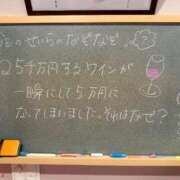 のせいらのなぞなぞ。
25千万円するワインが
一瞬にして5万円に
なってしまいました。それはなぜ?